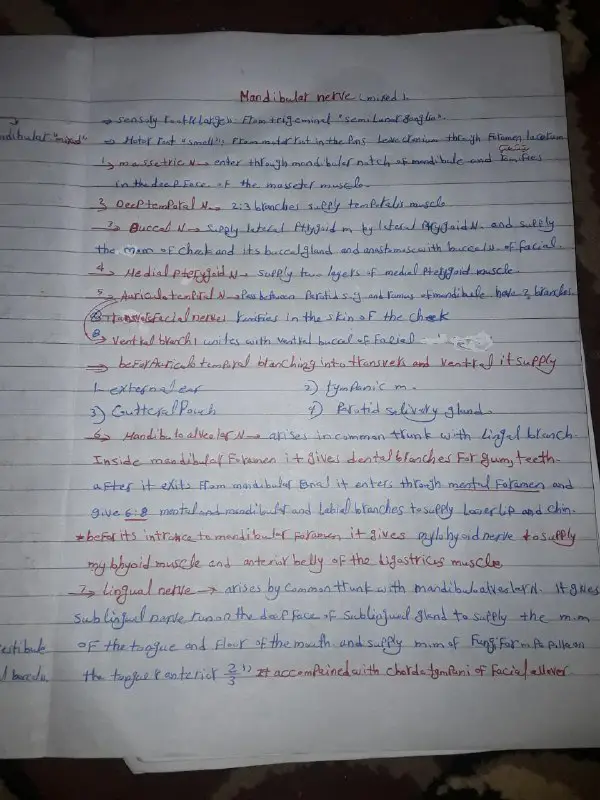 Mandibular nerve (mixed).
→ sensory root "large": From trigeminal "semilunar ganglion".
ndibular "mixed" → Motor root "small": From motor root in the Pons leave cranium through Foramen lacerum
1→ massetric N→ enter through mandibular notch of mandibule and ramifies
in the deep face of the masseter muscle.
2→ Deep temporal N→ 2:3 branches supply temporalis muscle.
3→ Buccal N→ supply lateral Pterygoid m by lateral Pterygoid N. and supply
the m.m of cheek and its buccal gland and anastomase with buccal N. of facial.
4→ Medial pterygoid N→ supply two layers of medial pterygoid muscle.
5→ Auriculotemporal N→ Pass between Parotid s.g and ramus of mandibule have 2 branches
① transverse facial nerve: ramifies in the skin of the cheek
② → ventral branch: unites with ventral buccal of Facial
→ befor Auriculotemporal branching into transvers and ventral it supply
1- external ear 2) tympanic m.
3) Gutteral Pouch 4) Parotid salivary gland.
6→ Mandibuloalveolar N→ arises in common trunk with lingal branch.
Inside mandibular Foramen it gives dental branches For gum, teeth.
after it exits From mandibular canal it enters through mental Foramen and
give 6:8 mental and mandibular and Labial branches to supply Lower Lip and chin.
*befor its intrance to mandibular Foramen it gives mylohyoid nerve to supply
mylohyoid muscle and anterior belly of the digastricus muscle
7→ Lingual nerve → arises by common trunk with mandibuloalveolar N. It gives
sublingual nerve run on the deep face of sublingual gland to supply the m.m
estibule of the tongue and floor of the mouth and supply m.m of Fungiform papillae on
l the tongue "anterior 2/3" It accompained with chorda tympani of Facial